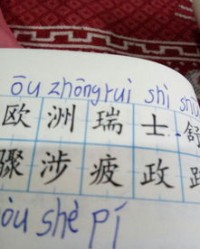 ōu zhōng ruì shì shū
欧洲瑞士舒
骤涉疲政
òu shè pí